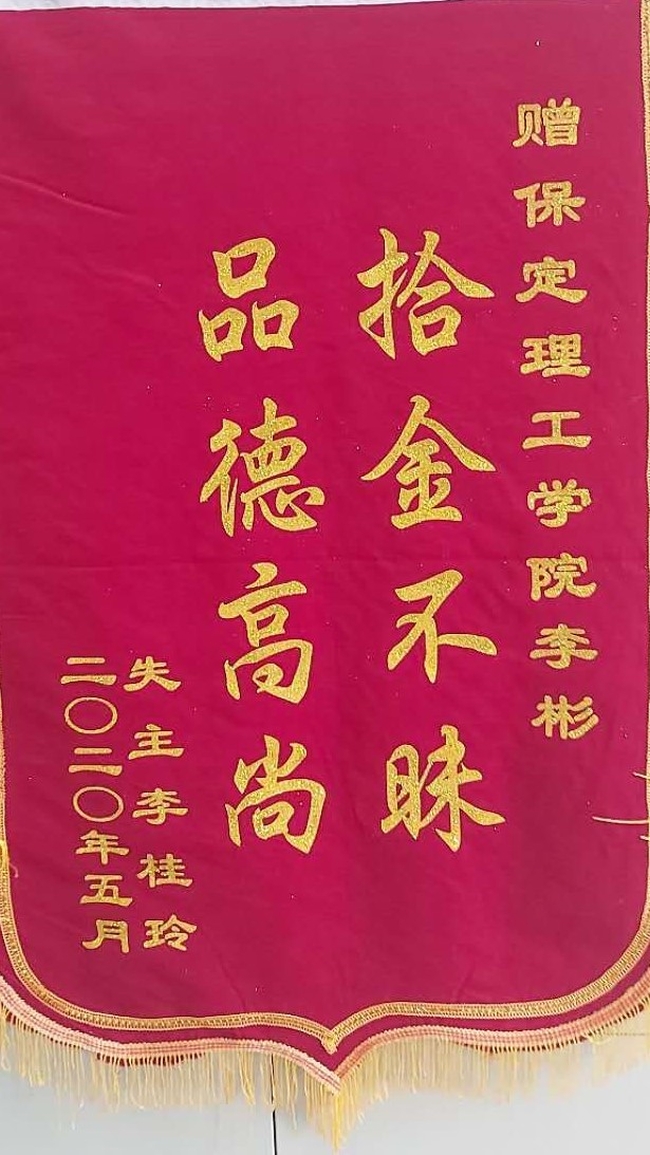 赠保定理工学院李彬
拾金不昧
品德高尚
失主李桂玲
二〇二〇年五月